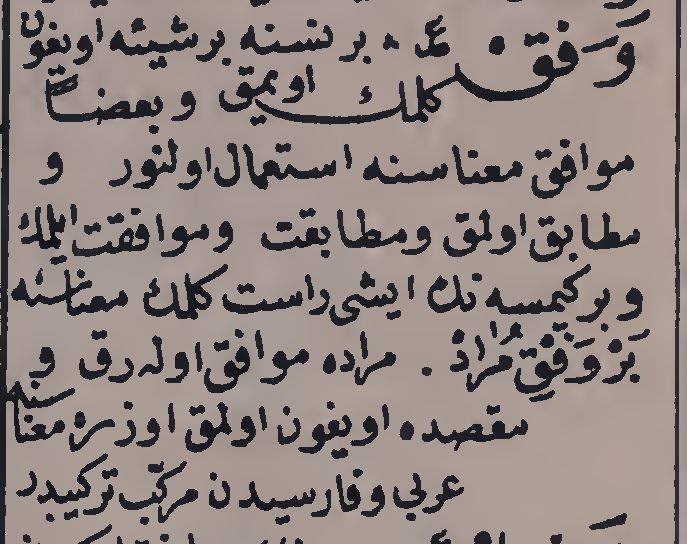 وَفق ؏ بر نسنه برشیئه اویغون
کلمك اویمق و بعضاً
موافق معناسنه استعمال اولنور و
مطابق اولمق ومطابقت وموافقت ایلمك
و برکمسه نك ایشی راست کلمك معناسنه
بَرْ وَفْقِ مُرَادْ . مراده موافق اوله رق و
مقصده اویغون اولمق اوزره معناسنه
عربی وفارسیدن مرکّب ترکیبدر